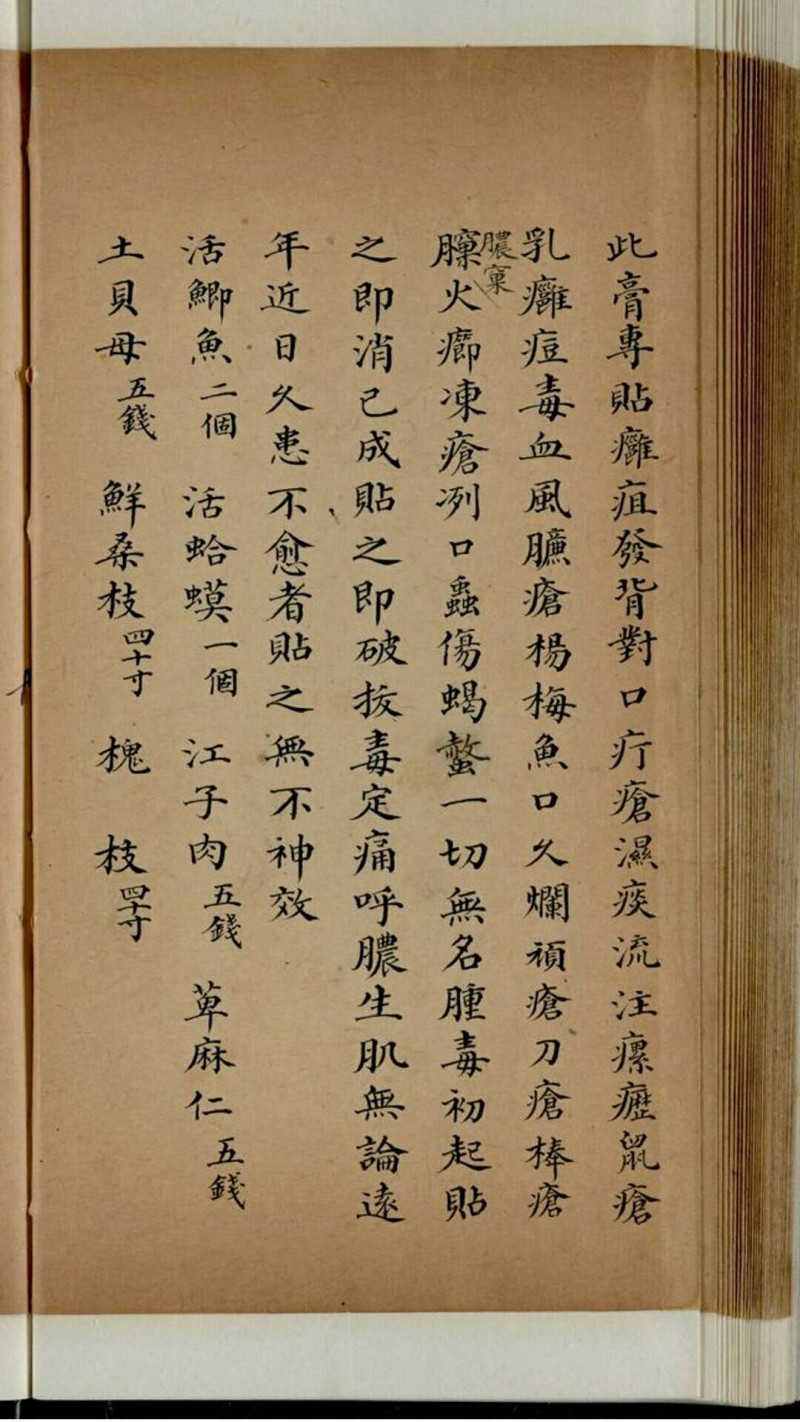 此膏專貼癰疽發背對口疔瘡濕痰流注瘰癧鼠瘡
乳癰痘毒血風臁瘡楊梅魚口久爛頑瘡刀瘡棒瘡
膿窠
火癤凍瘡冽口蟲傷蝎螫一切無名腫毒初起貼
之即消已成貼之即破拔毒定痛呼膿生肌無論遠
年近日久患不愈者貼之無不神效
活鯽魚二個 活蛤蟆一個 江子肉五錢 萆麻仁五錢
土貝母五錢 鮮桑枝四十寸 槐枝四十寸